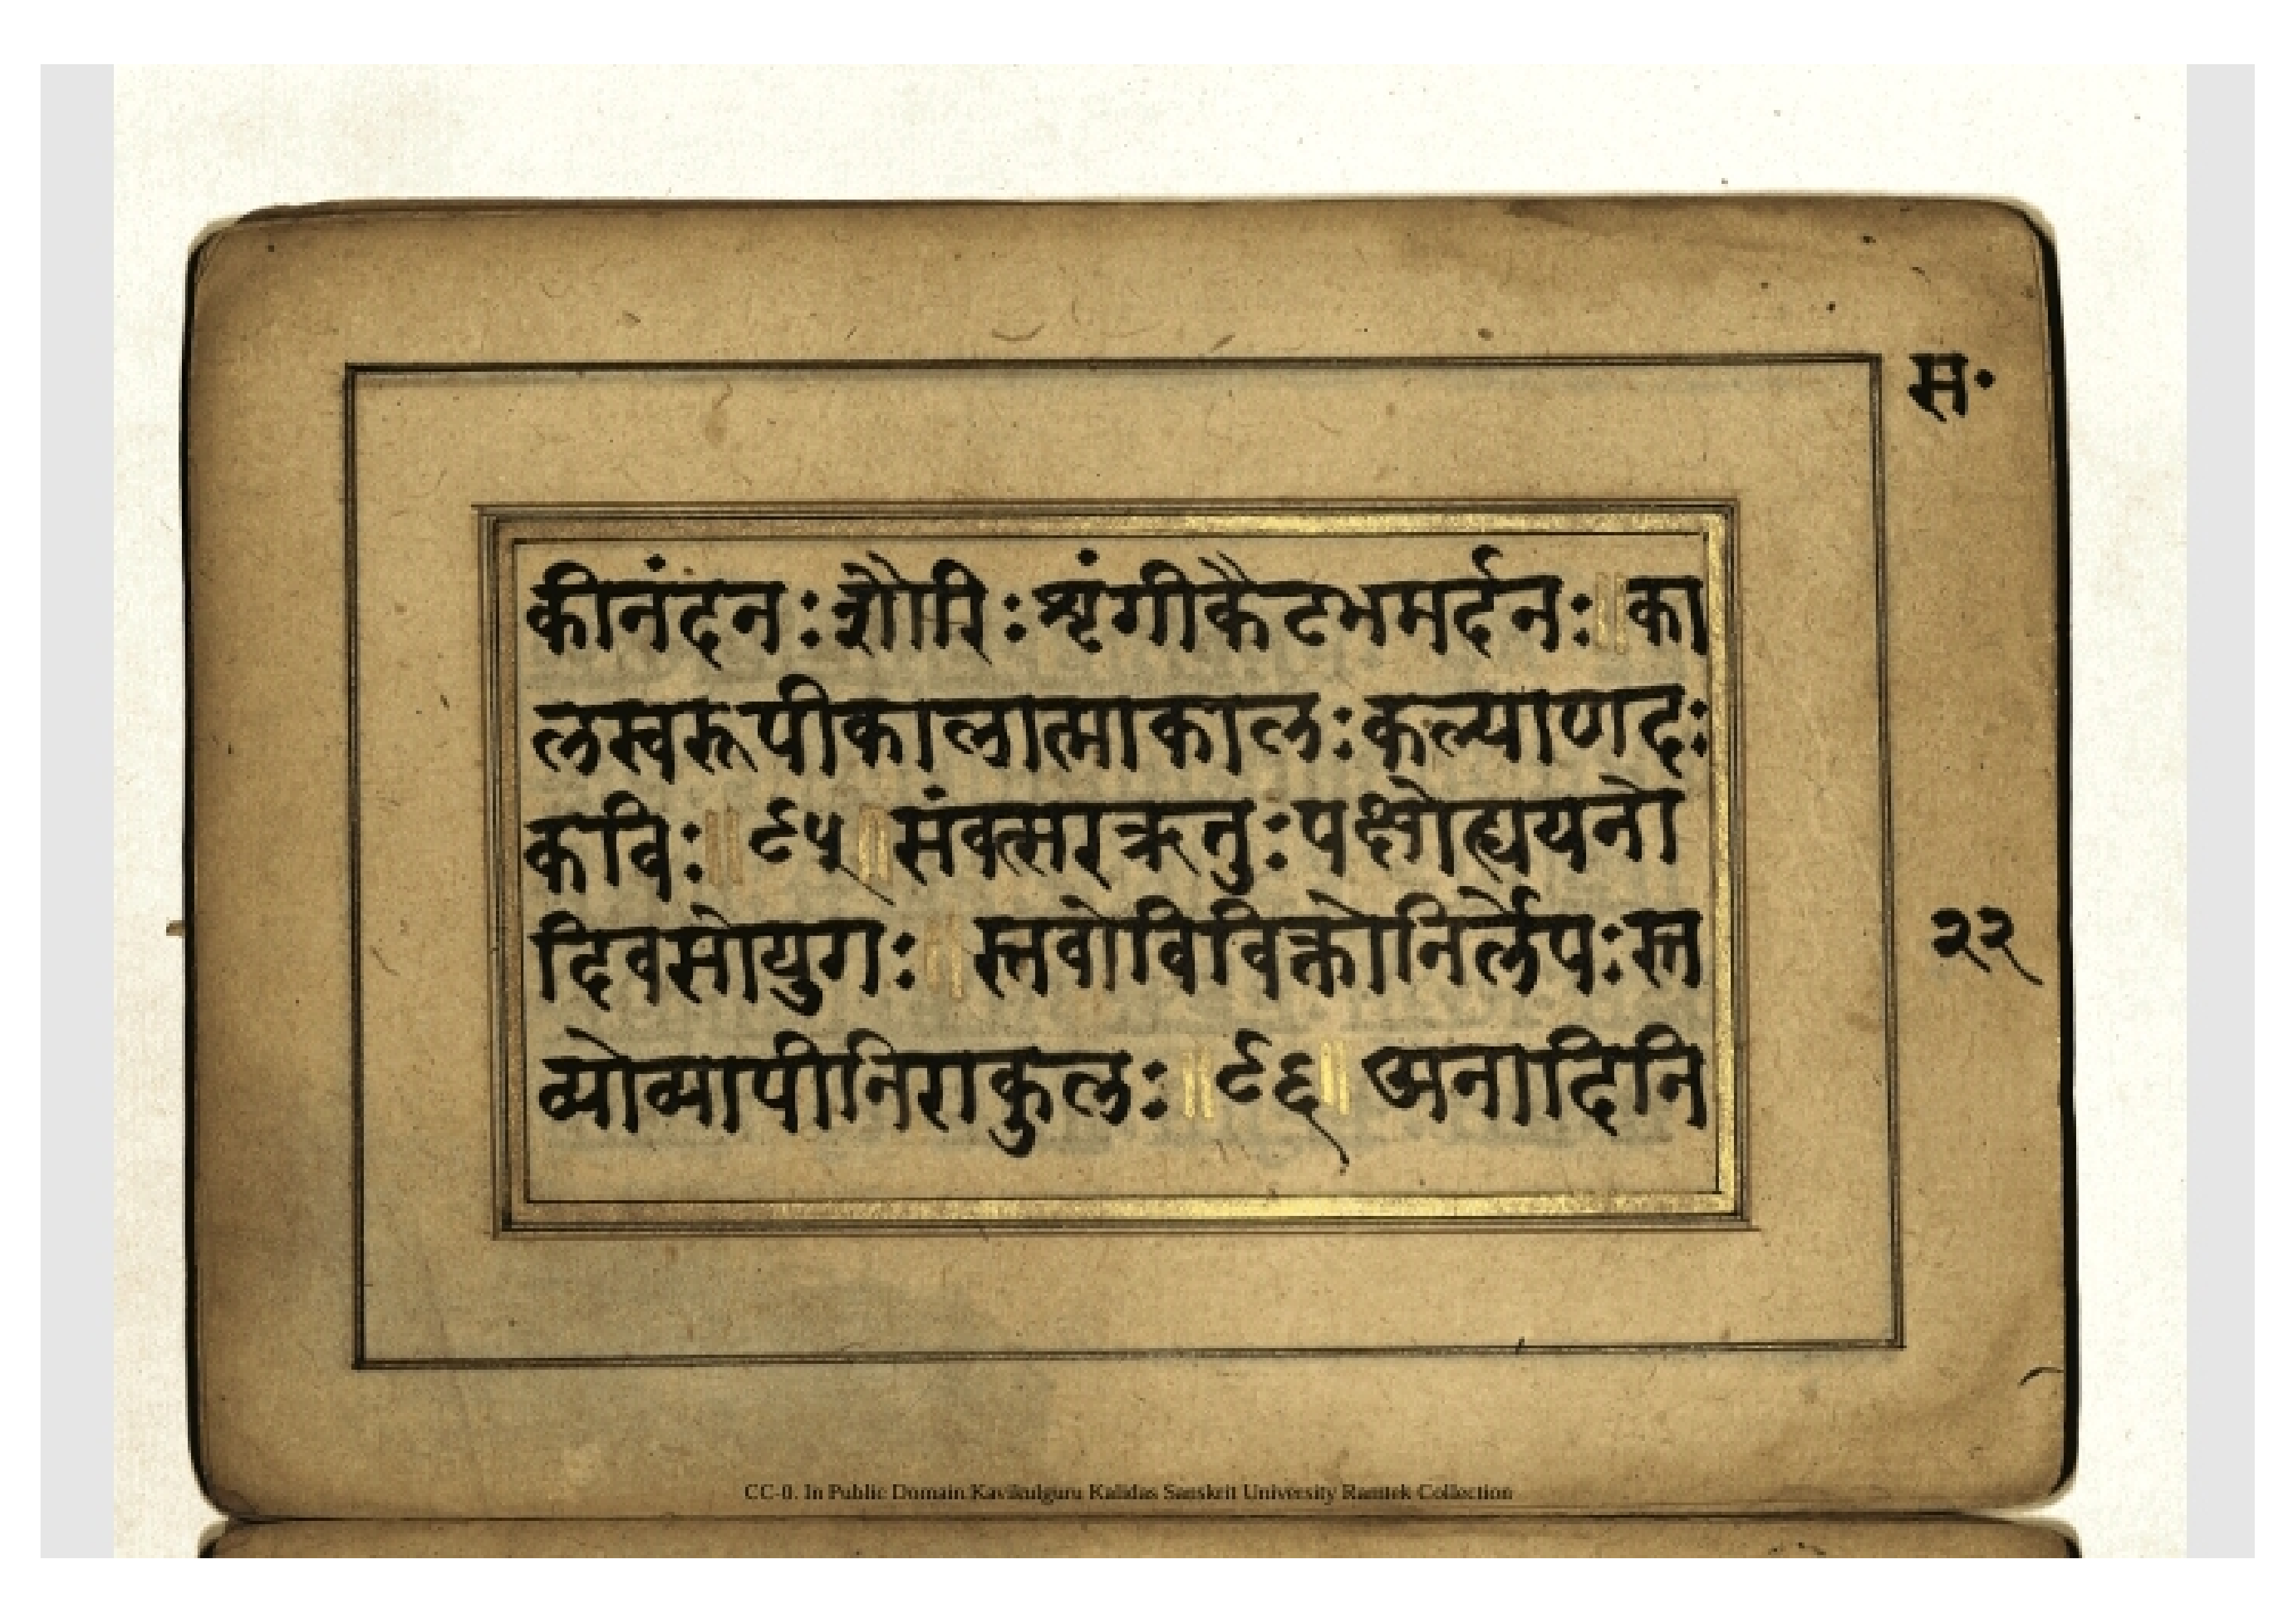 स॰
कीनंदनःशौरिःशृंगीकैटभमर्दनः॥का
लस्वरूपीकालात्माकालःकल्याणदः
कविः॥९५॥संवत्सरऋतुःपक्षोह्ययनो
दिवसोयुगः॥स्तवोविविक्तोनिर्लेपःस्त
व्योव्यापीनिराकुलः॥९६॥अनादिनि
२२
CC-0. In Public Domain Kavikulguru Kalidas Sanskrit University Ramtek Collection